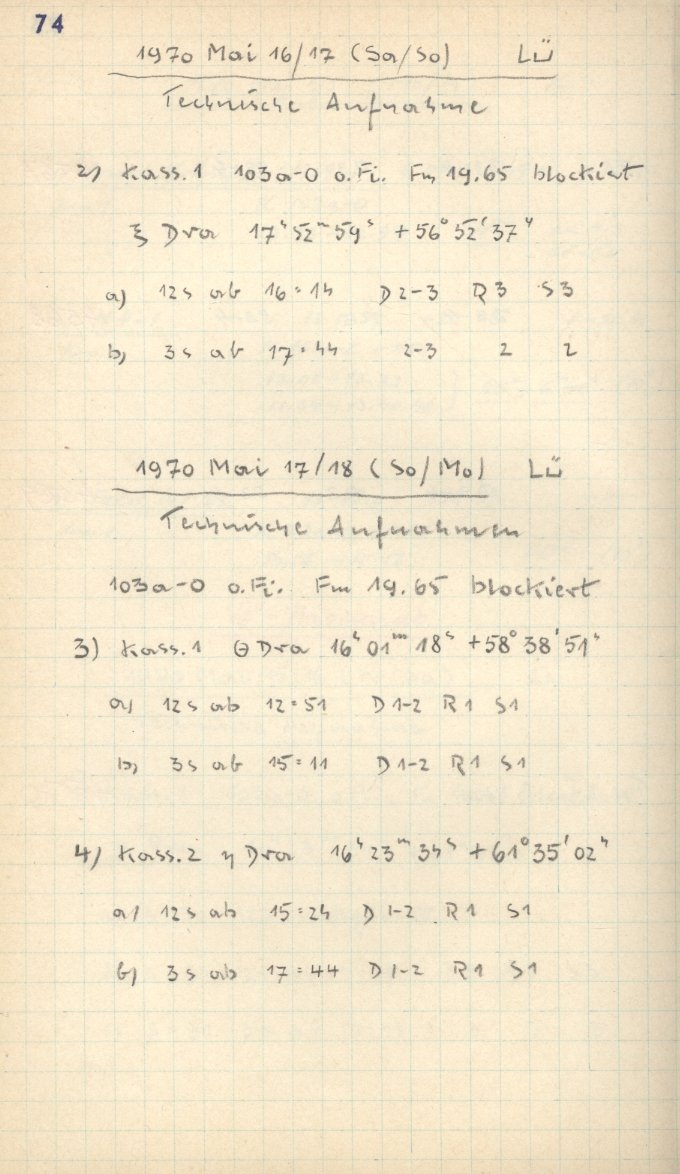 74
1970 Mai 16/17 (Sa/So) Lü
Technische Aufnahme
2) Kass. 1 103a-O o. Fi. Fm 19.65 blockiert
ξ Dra 17ʰ 52ᵐ 59ˢ +56° 52' 37"
a) 12s ab 16:14 D 2-3 R 3 S 3
b) 3s ab 17:44 2-3 2 2
1970 Mai 17/18 (So/Mo) Lü
Technische Aufnahmen
103a-O o. Fi. Fm 19.65 blockiert
3) Kass. 1 Θ Dra 16ʰ 01ᵐ 18ˢ +58° 38' 51"
a) 12s ab 12:51 D 1-2 R1 S1
b) 3s ab 15:11 D 1-2 R1 S1
4) Kass. 2 η Dra 16ʰ 23ᵐ 34ˢ +61° 35' 02"
a) 12s ab 15:24 D 1-2 R1 S1
b) 3s ab 17:44 D 1-2 R1 S1